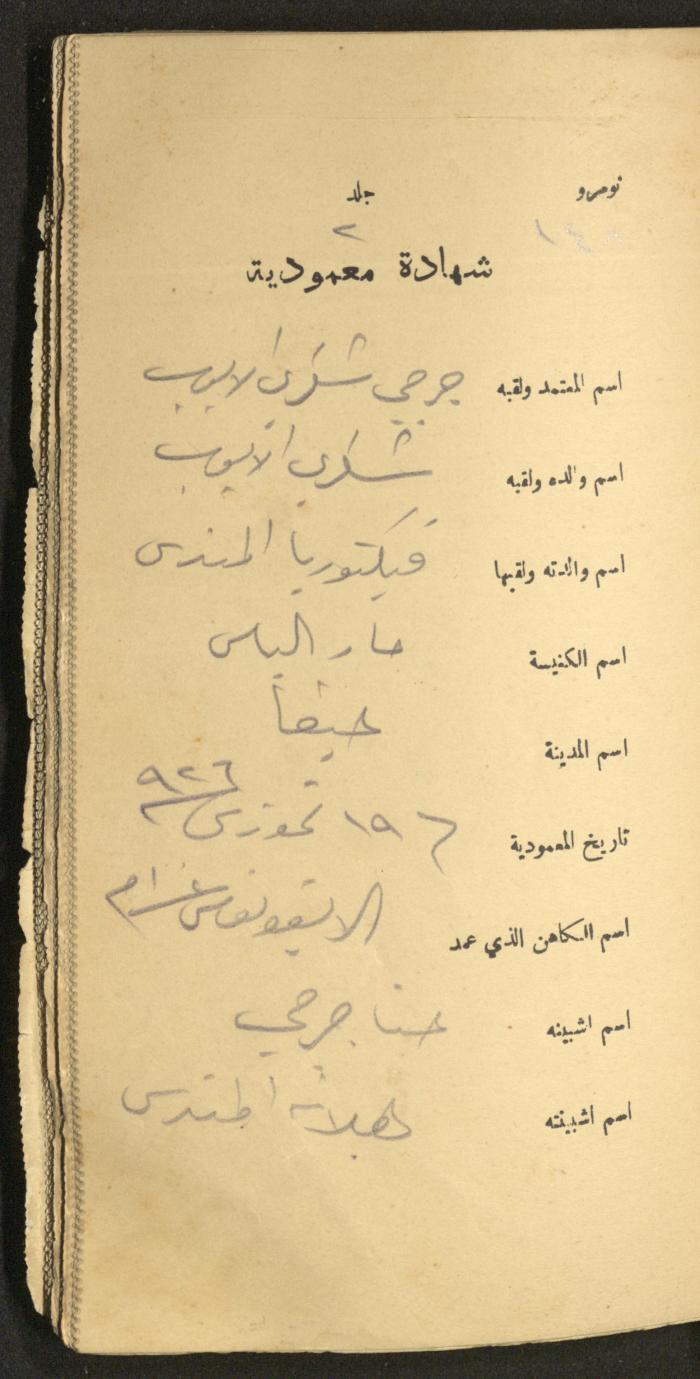 نومرو جلد
١٤٠ ٢
شهادة معمودية
اسم المعتمد ولقبه جرجي شكري الايوب
اسم والده ولقبه شكري الايوب
اسم والدته ولقبها فيكتوريا المندس
اسم الكنيسة مار الياس
اسم المدينة حيفا
تاريخ المعمودية ١٩ تموز سنة ٩٢٦
اسم الكاهن الذي عمد
اسم اشبينه حنا جرجي
اسم اشبينته المندس